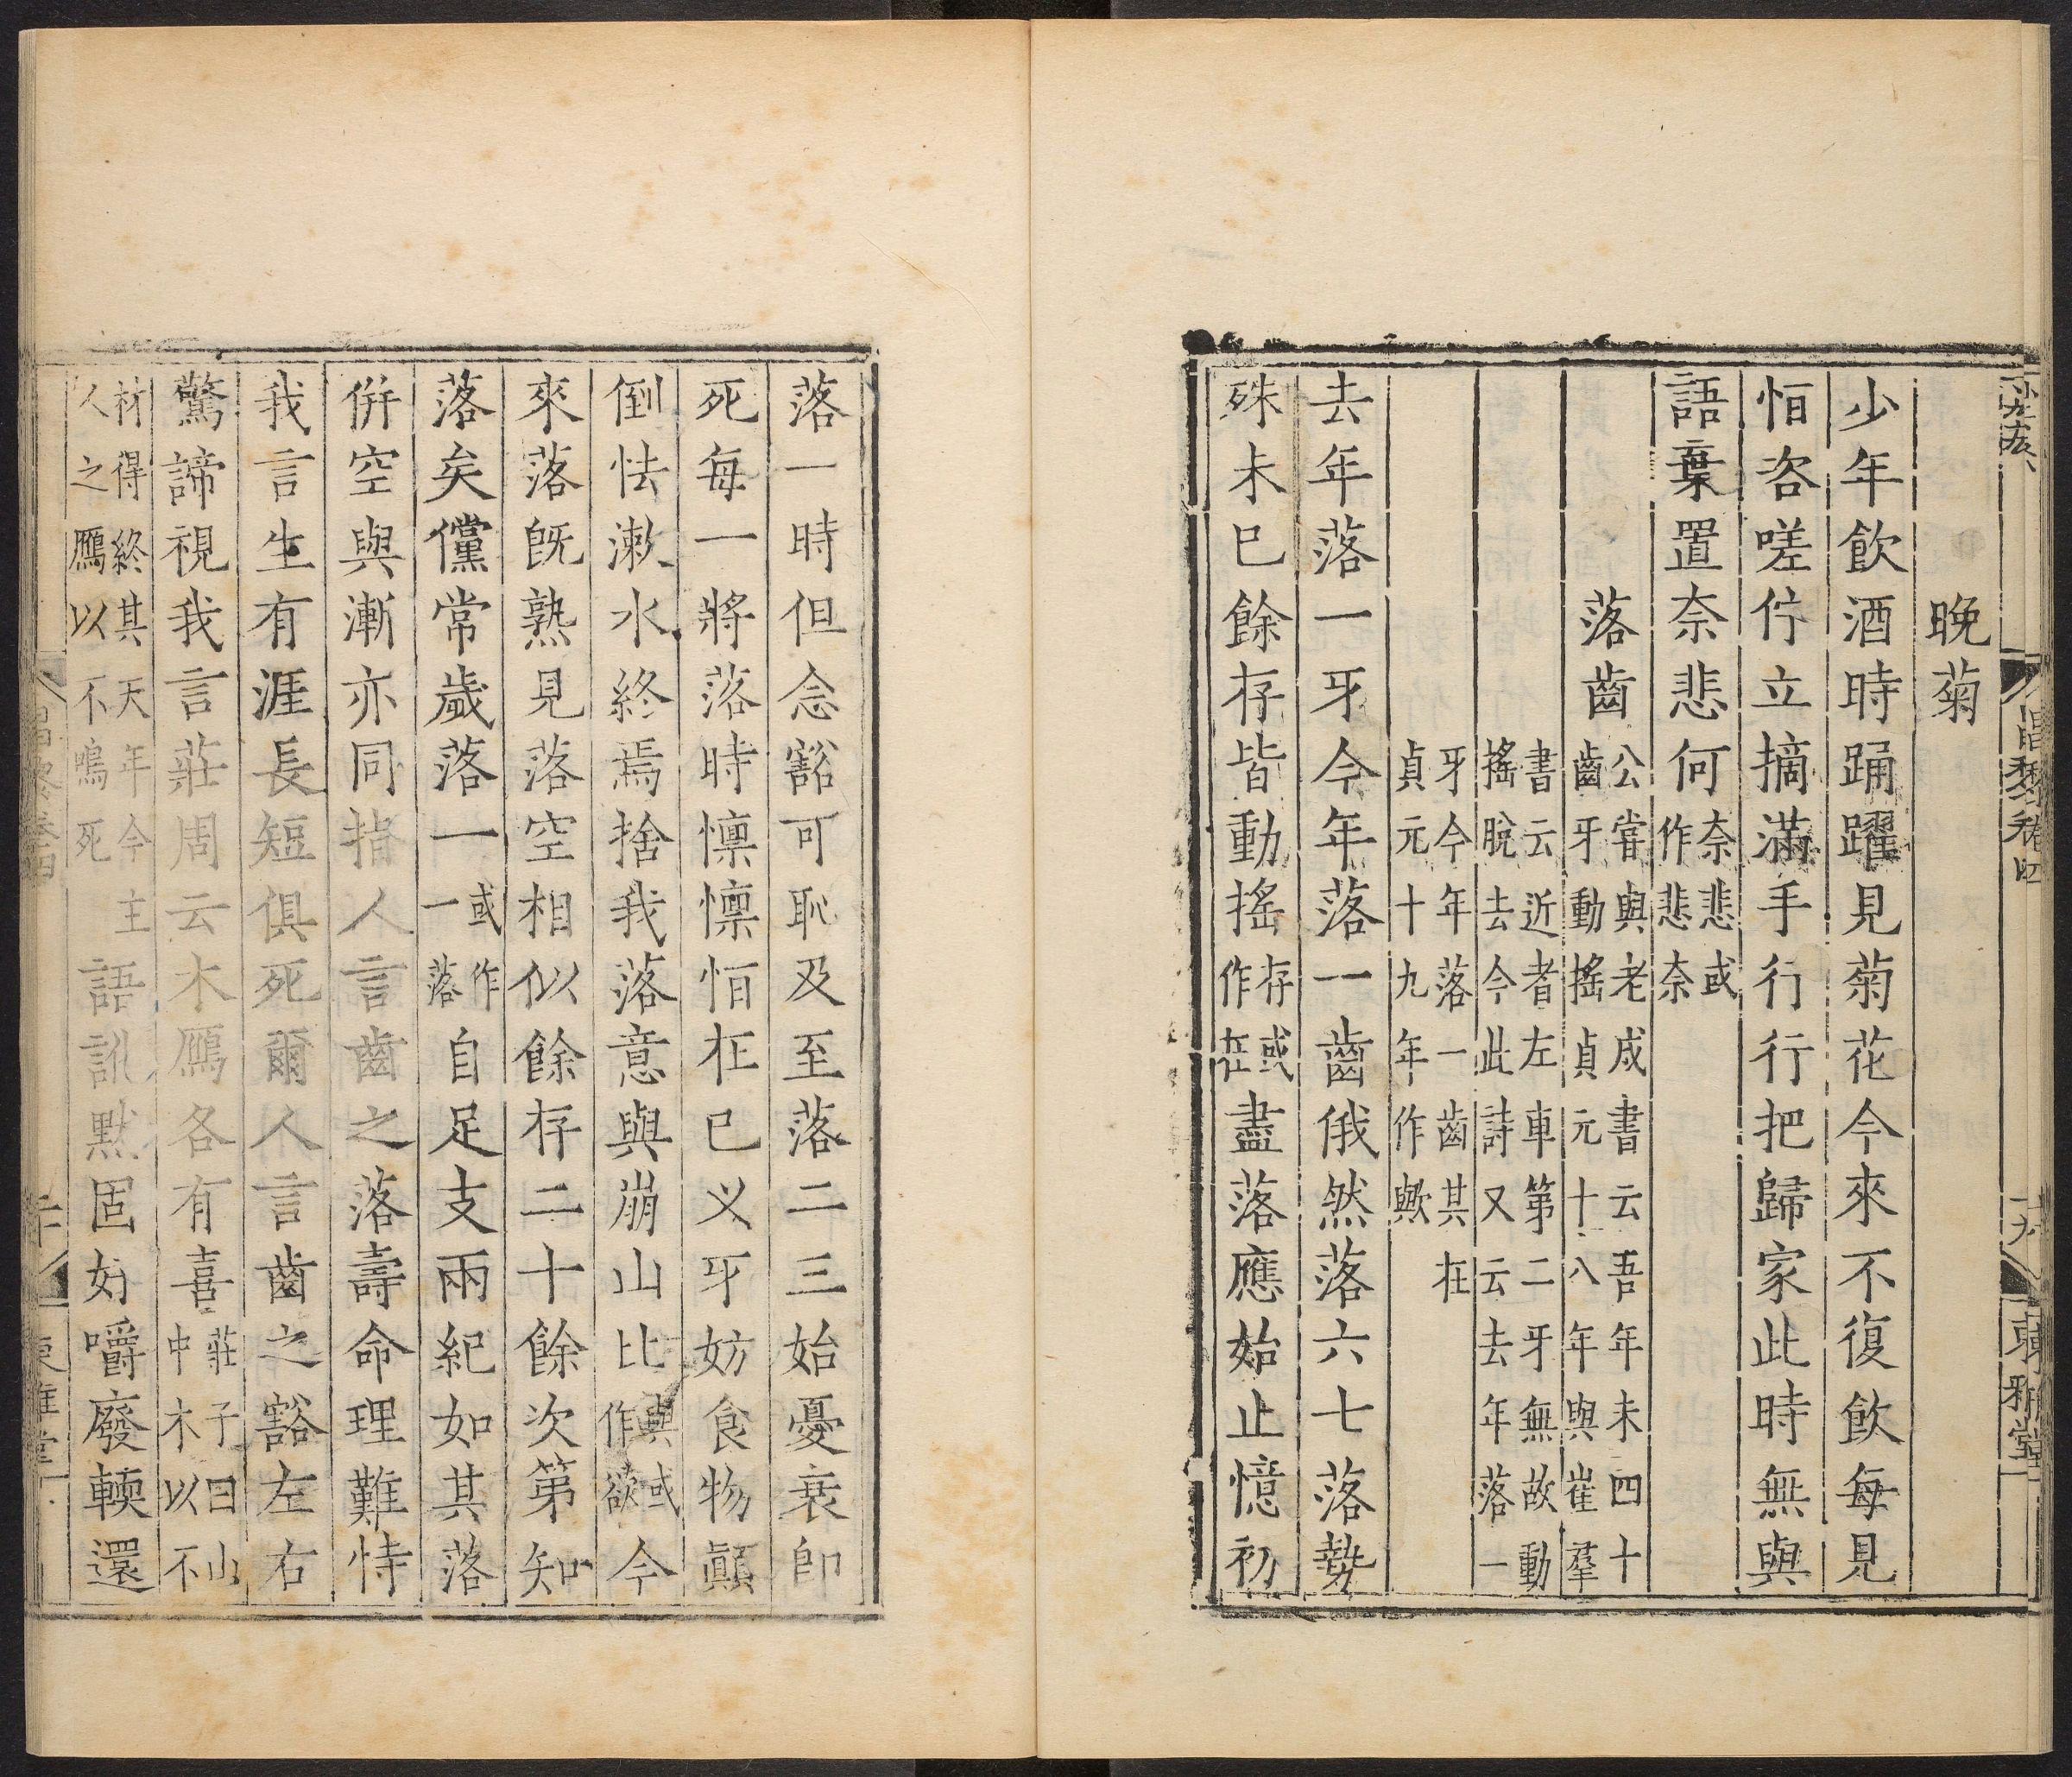 晚菊
少年飲酒時踊躍見菊花今來不復飲每見
恒咨嗟佇立摘滿手行行把歸家此時無與
語棄置奈悲何奈悲或作悲奈
落齒公嘗與老成書云吾年未四十齒牙動搖貞元十八年與崔羣
書云近者左車第二牙無故動搖脫去今此詩又云去年落一
牙今年落一齒其在貞元十九年作歟
去年落一牙今年落一齒俄然落六七落勢
殊未已餘存皆動搖存或作在盡落應始止憶初
昌黎卷四
十九
東雅堂
落一時但念豁可恥及至落二三始憂衰即
死每一將落時懍懍恒在已叉牙妨食物顛
倒怯漱水終焉捨我落意與崩山比與或作欲今
來落旣熟見落空相似餘存二十餘次第知
落矣儻常歲落一或作一落自足支兩紀如其落
併空與漸亦同指人言齒之落壽命理難恃
我言生有涯長短俱死爾人言齒之豁左右
驚諦視我言莊周云木鴈各有喜莊子曰山中木以不
材得終其天年今主人之鴈以不鳴死語訛默固好嚼廢輭還
昌黎卷四
二十
東雅堂